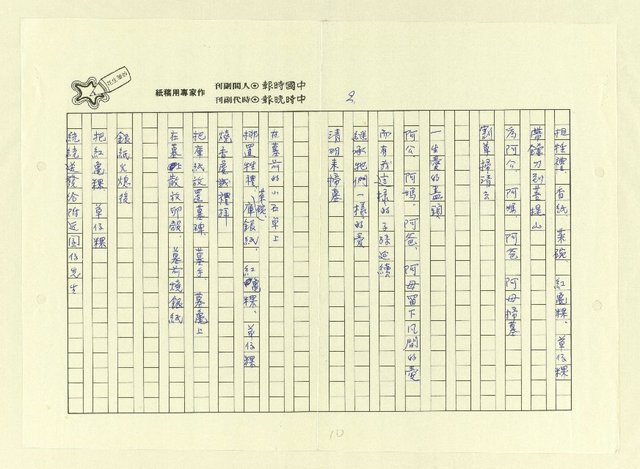 中國時報⊙人間副刊
中時晚報⊙時代副刊
作家專用稿紙
2
担牲禮、香紙、菜碗、紅龜粿、草仔粿
帶鐮刀到菩提山
為阿公、阿媽、阿爸、阿母掃墓
割草掃清之
一生愛的盡頭
阿公、阿媽、阿爸、阿母留下人間的愛
而有我這樣的子孫延續
繼承他們一樣的愛
清明來掃墓
在墓前的小石桌上
排置牲禮、菜碗、庫銀紙、紅龜粿、草仔粿
燒香虔誠禮拜
把庫紙放置墓碑、墓手、墓龜上
在墓壯散放卵殼 墓前燒銀紙
銀紙火熄後
把紅龜粿、草仔粿
統統送發給附近囡仔先生